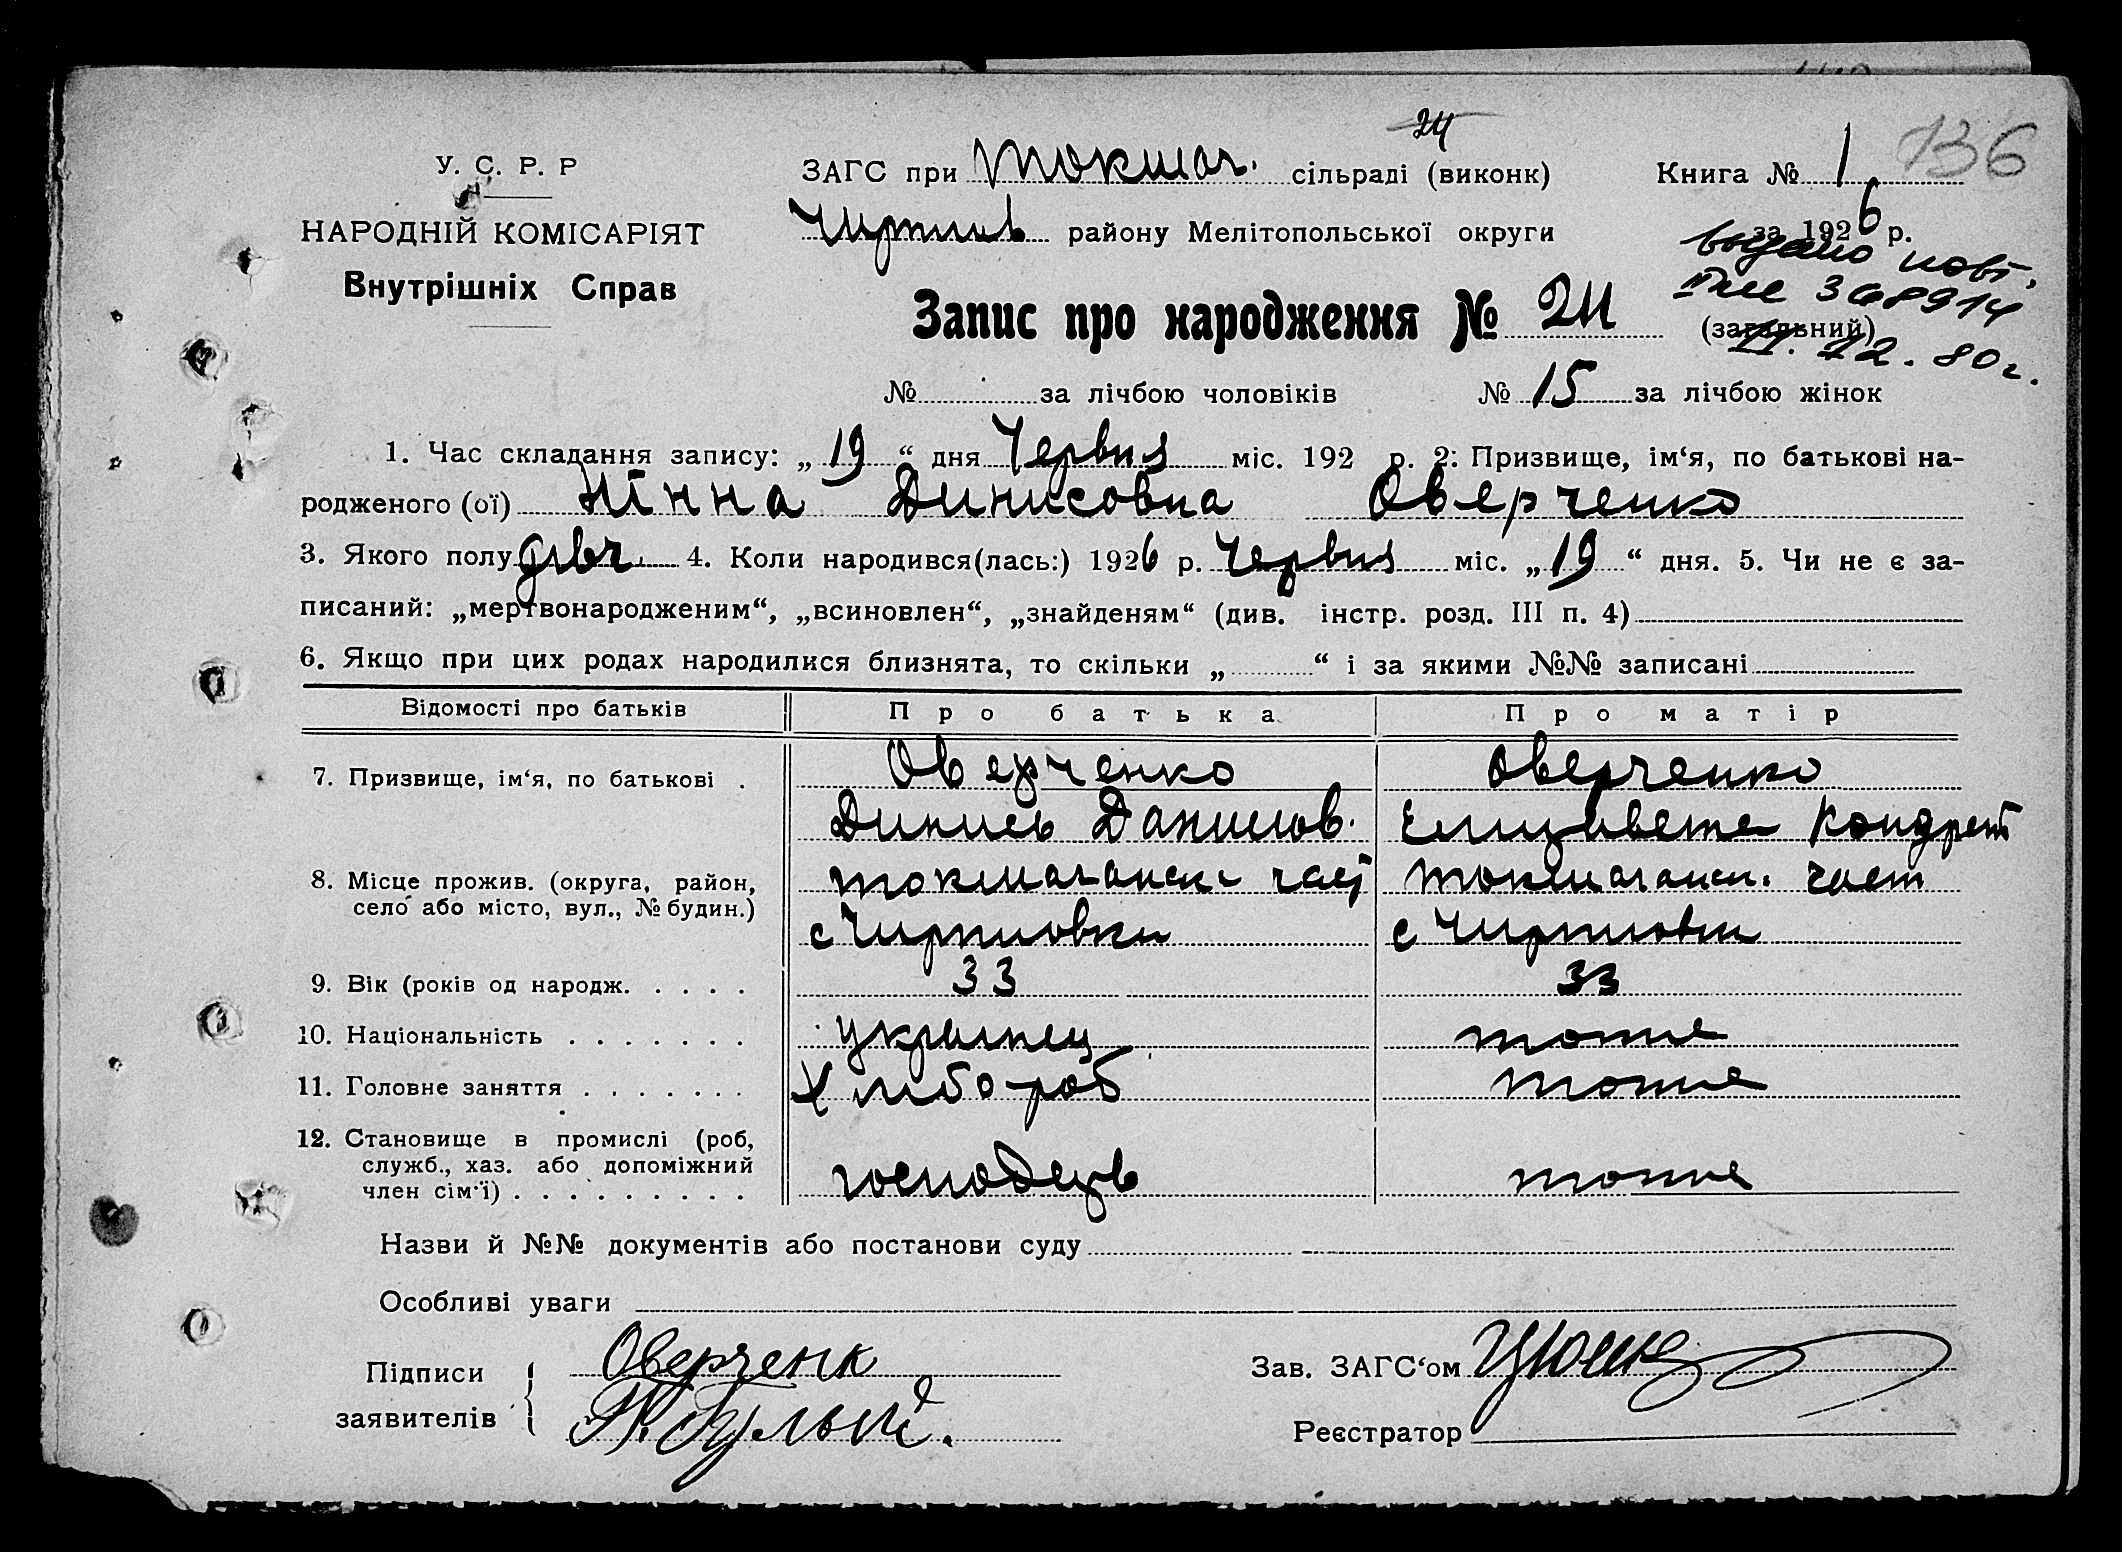 24
У. С. Р. Р ЗАГС при Токмач. сільраді (виконк) Книга № 1 136
НАРОДНІЙ КОМІСАРІЯТ району Мелітопольської округи за 1926 р.
Внутрішніх Справ
видано повт.
368914
Запис про народження № 24 (загальний)
12. 80 г.
№ за лічбою чоловіків № 15 за лічбою жінок
1. Час складання запису: „ 19 “ дня Червня міс. 192 р. 2: Призвище, ім‘я, по батькові на-
родженого (ої) Нінна Динисовна Оверченко
3. Якого полу дівч. 4. Коли народився(лась:) 1926 р. Червня міс. „ 19 “ дня. 5. Чи не є за-
писаний: „мертвонародженим“, „всиновлен“, „знайденям“ (див. інстр. розд. III п. 4)
6. Якщо при цих родах народилися близнята, то скільки „ “ і за якими №№ записані
Відомості про батьків Про батька Про матір
7. Призвище, ім‘я, по батькові . Оверченко Оверченко
Динись Данилов. Елизавета Кондрат
8. Місце прожив. (округа, район, част
село або місто, вул., № будин.) с с
9. Вік (років од народж. . . . . 33 33
10. Національність . . . . . . . украинец тоже
11. Головне заняття . . . . . . . Хлібороб тоже
12. Становище в промислі (роб,
служб., хаз. або допоміжний
член сім‘ї) . . . . . . . . . господарь тоже
Назви й №№ документів або постанови суду
Особливі уваги
Підписи Оверченк Зав. ЗАГС‘ом
заявителів Реєстратор